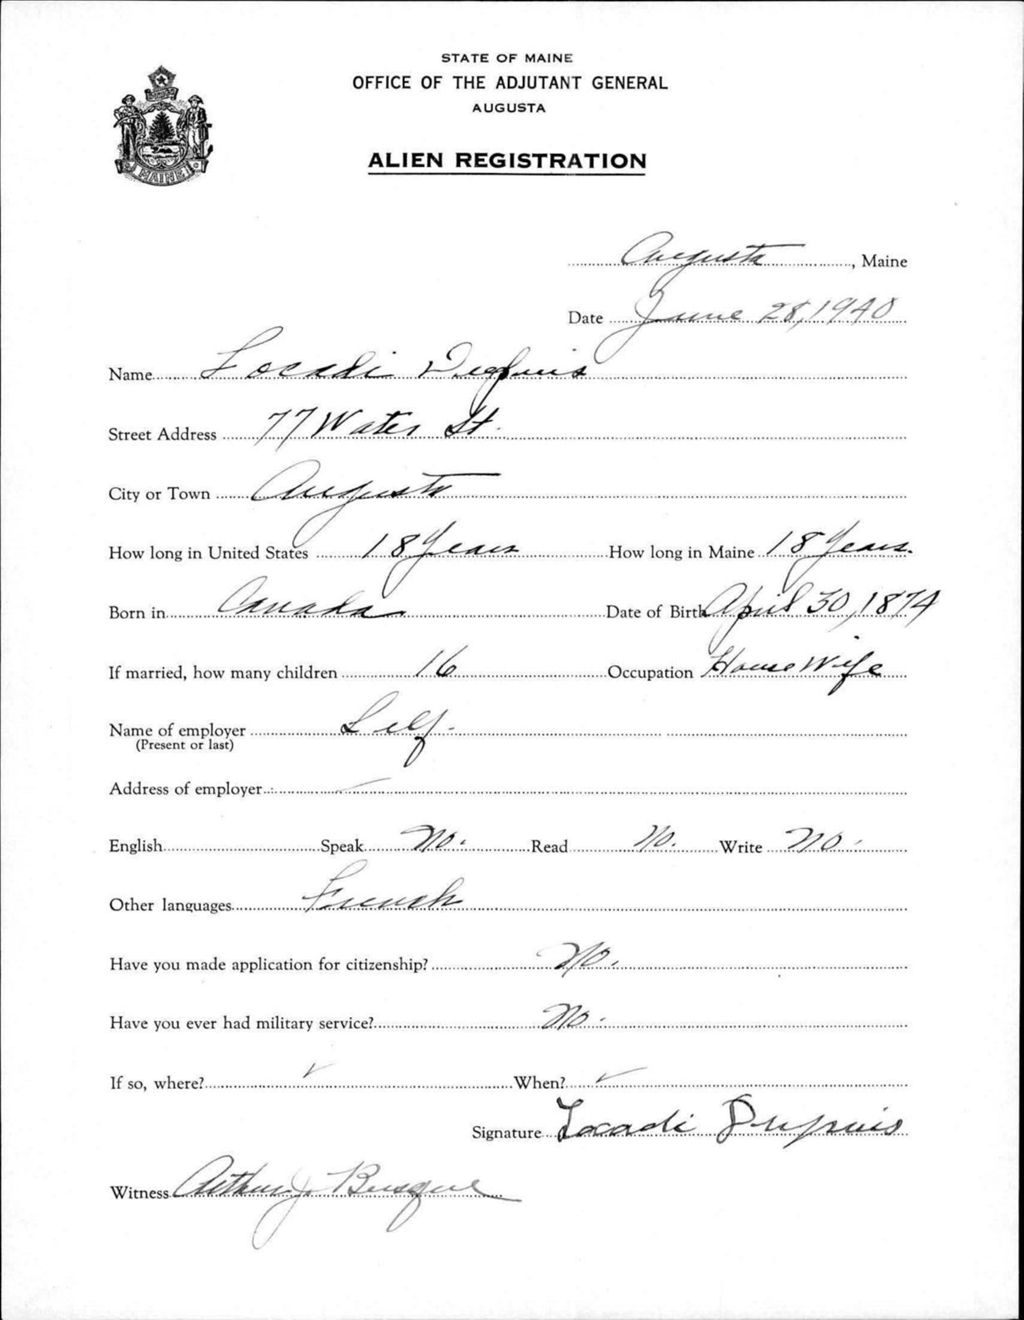 STATE OF MAINE
OFFICE OF THE ADJUTANT GENERAL
AUGUSTA
MAINE
ALIEN REGISTRATION
Augusta, Maine
Date June 28, 1940
Name Locadi Dupuis
Street Address 77 Water St.
City or Town Augusta
How long in United States 18 Years How long in Maine 18 Years.
Born in Canada Date of Birth April 30, 1874
If married, how many children 16 Occupation House Wife
Name of employer Self.
(Present or last)
Address of employer
English Speak No. Read No. Write No.
Other languages French
Have you made application for citizenship? No.
Have you ever had military service? No.
If so, where? ✓ When? ✓
Signature Locadi Dupuis
Witness Arthur J. Busque